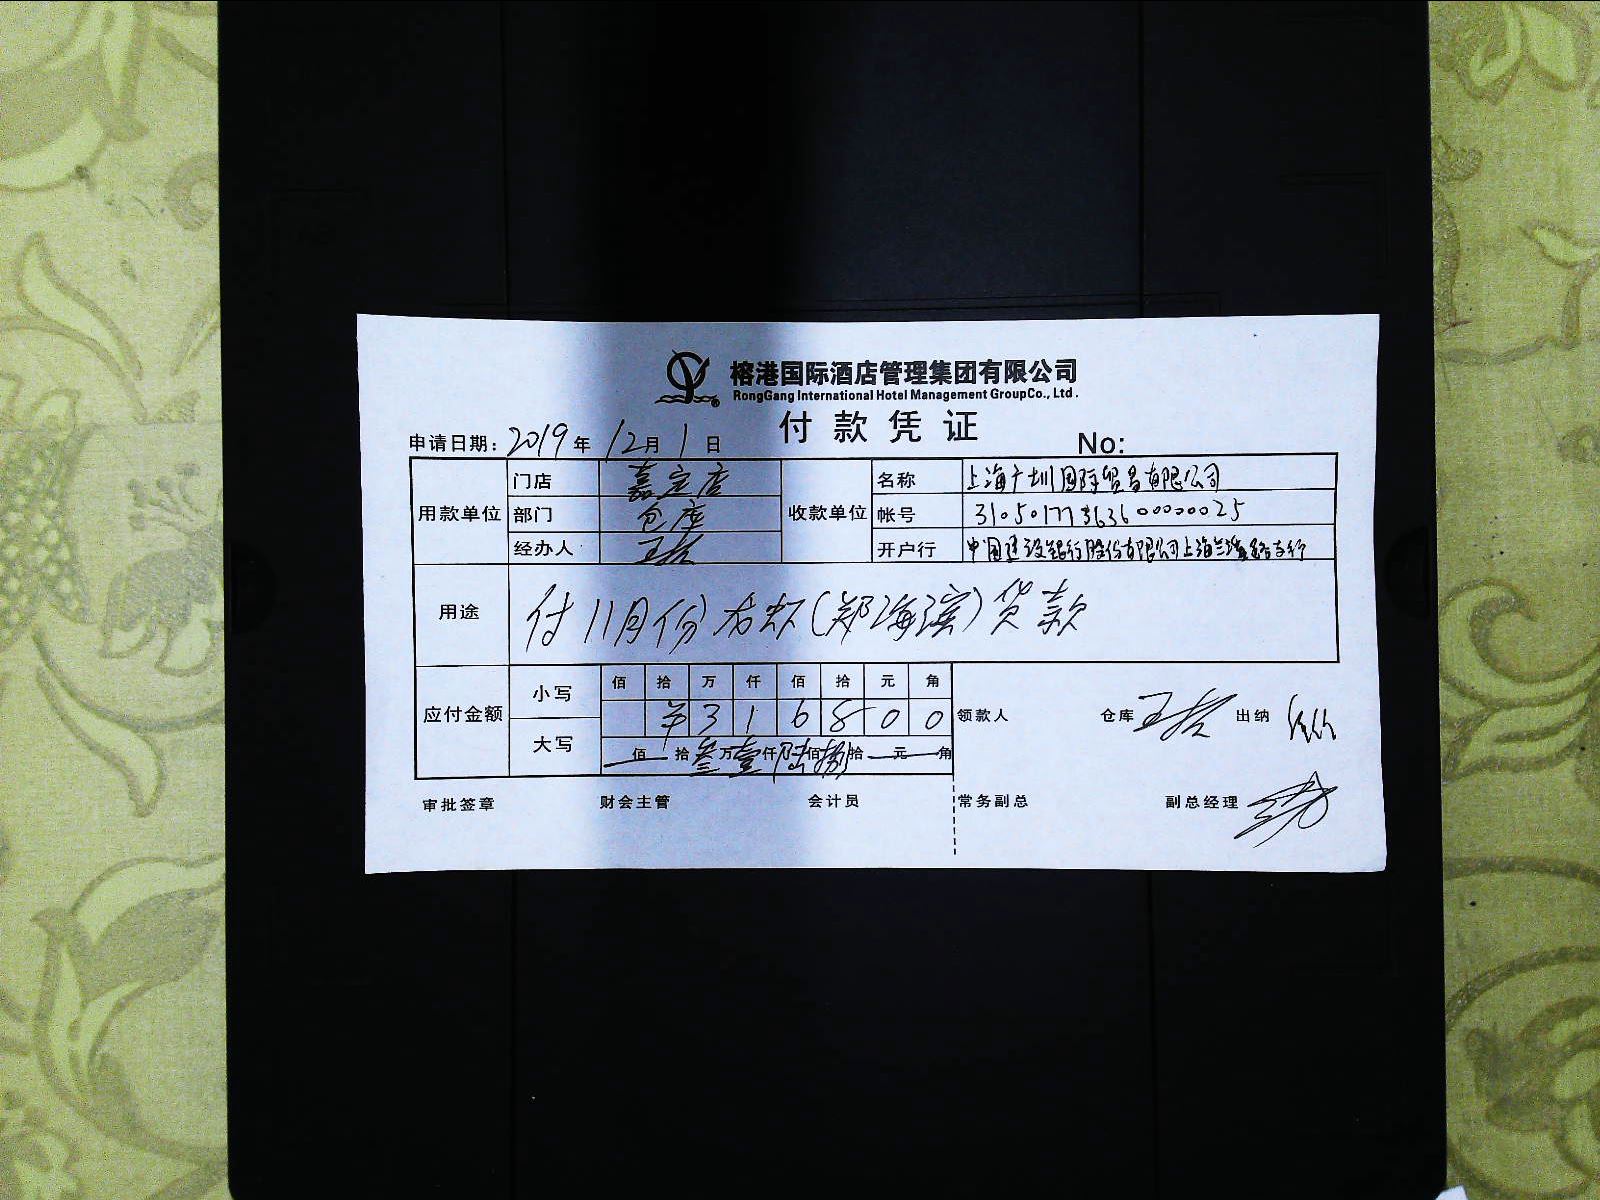 榕港国际酒店管理集团有限公司
RongGang International Hotel Management GroupCo., Ltd.
付款凭证
申请日期: 2019年12月1日 No:
用款单位 门店 嘉定店 收款单位 名称 上海广圳国际贸易有限公司
部门 仓库 帐号 31050177363600000025
经办人 开户行 中国建设银行股份有限公司上海兰溪路支行
用途 付11月份(郑海滨)货款
应付金额 小写 佰 拾 万 仟 佰 拾 元 角
¥316800 领款人 仓库 出纳
大写 佰 拾叁万壹仟陆佰捌拾 元 角
审批签章 财会主管 会计员 常务副总 副总经理